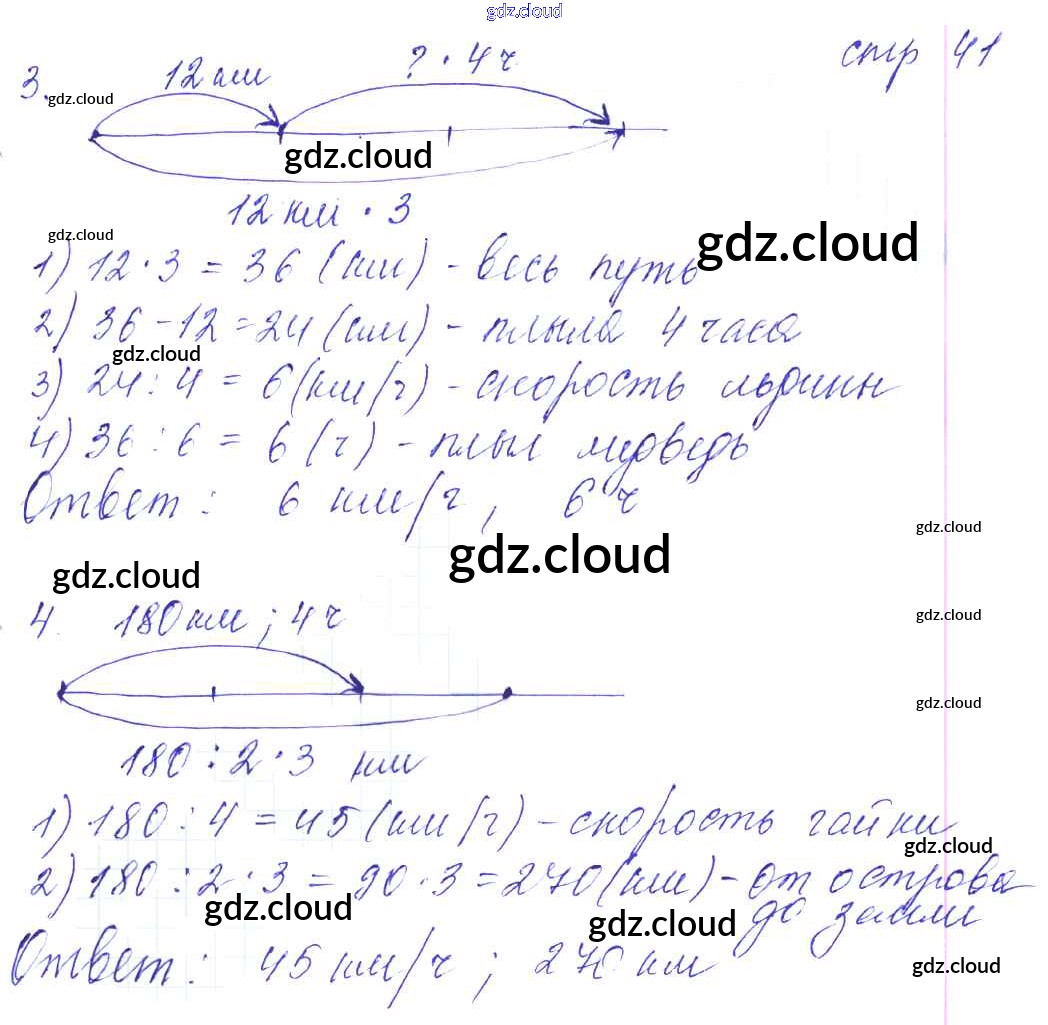 gdz.cloud
стр 41
3. 12 км ? · 4 ч
gdz.cloud
gdz.cloud
12 км · 3
gdz.cloud
gdz.cloud
1) 12 · 3 = 36 (км) - весь путь
2) 36 - 12 = 24 (км) - плыла 4 часа
gdz.cloud
3) 24 : 4 = 6 (км/ч) - скорость льдины
4) 36 : 6 = 6 (ч) - плыл медведь
Ответ: 6 км/ч, 6 ч
gdz.cloud
gdz.cloud
gdz.cloud
4. 180 км ; 4 ч
gdz.cloud
gdz.cloud
180 : 2 · 3 км
1) 180 : 4 = 45 (км/ч) - скорость гайки
gdz.cloud
2) 180 : 2 · 3 = 90 · 3 = 270 (км) - от острова
gdz.cloud
до земли
gdz.cloud
Ответ: 45 км/ч ; 270 км
gdz.cloud